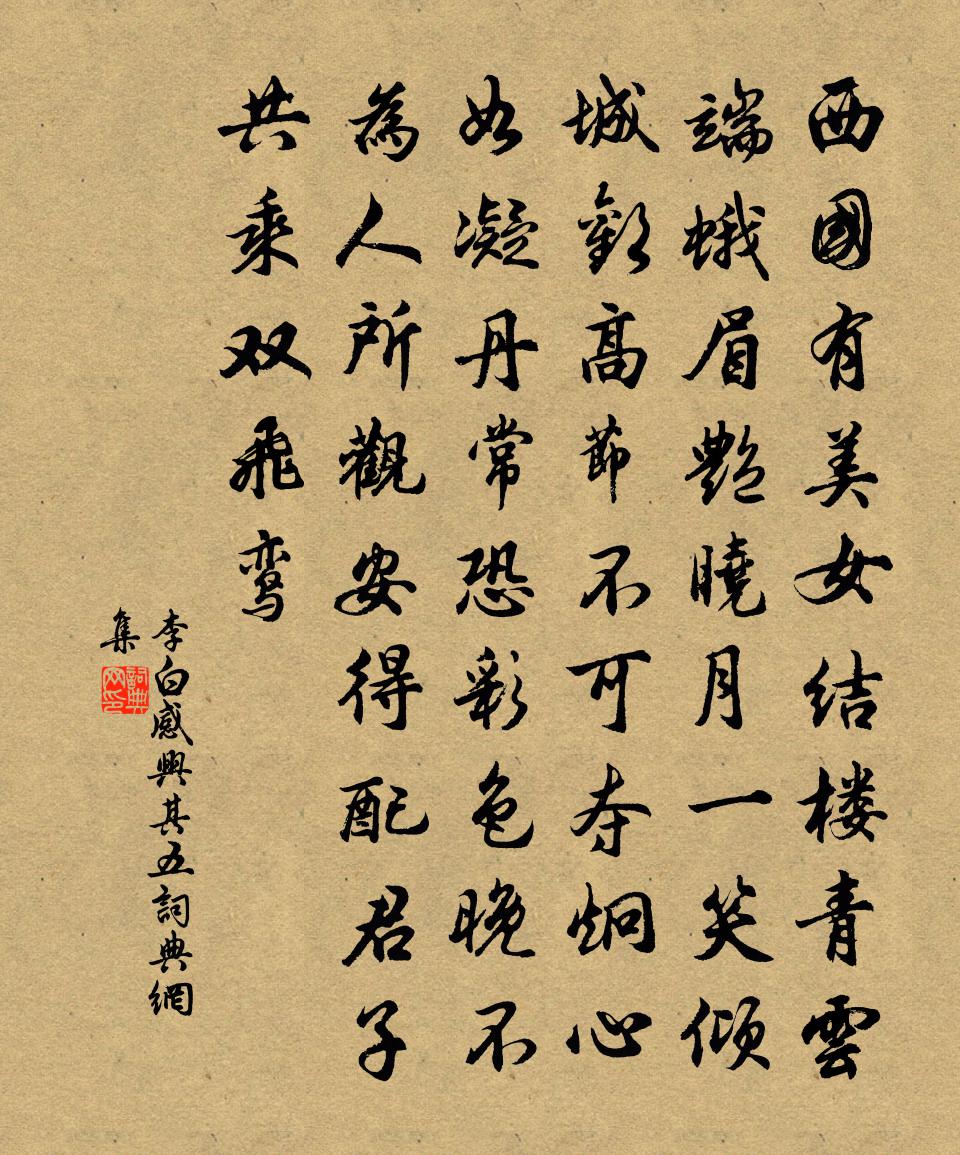 西國有美女结楼青雲
端蛾眉艷曉月一笑倾
城歡高節不可夺炯心
如凝丹常恐彩色晚不
為人所觀安得配君子
共乘双飛鸾
李白感興其五詞典網
集
詞典網印